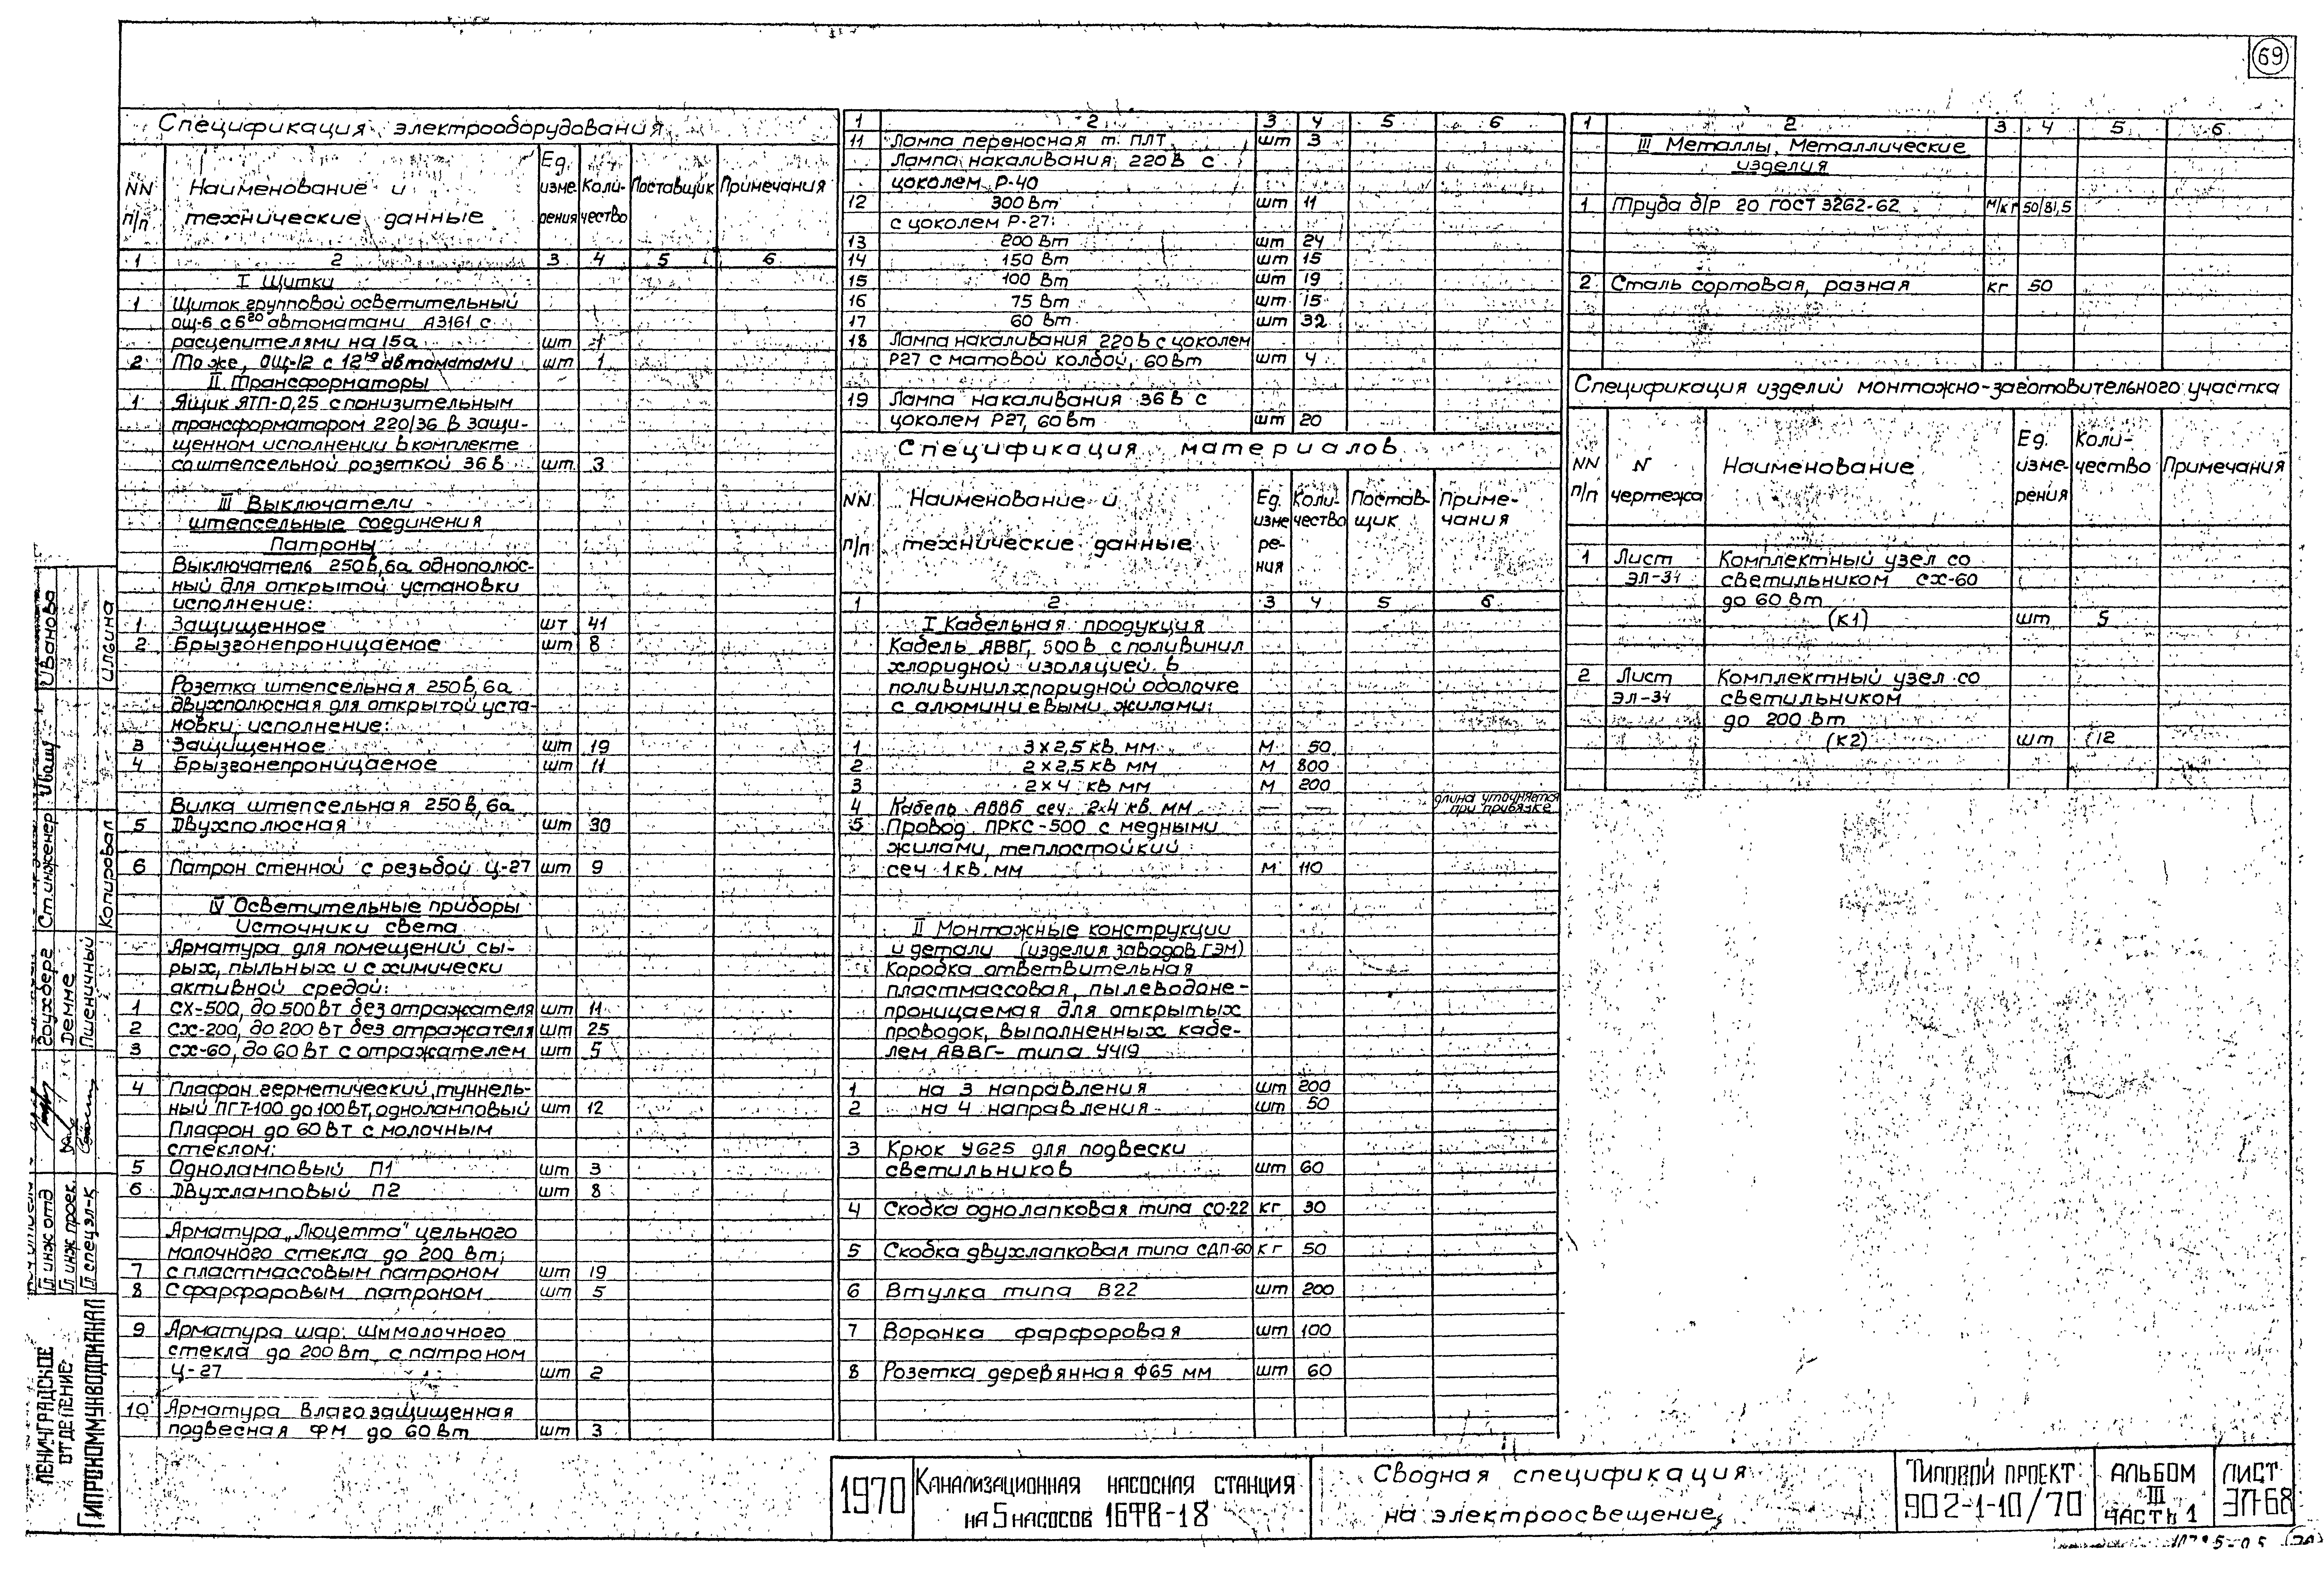 69
Спецификация электрооборудования
NN п/п
Наименование и технические данные
Ед. измерения
Коли-чество
Поставщик
Примечания
1 2 3 4 5 6
I Щитки
1 Щиток групповой осветительный
ОЩ-6 с 6го автоматани А3161 с
расцепителями на 15а шт 1
2 То же, ОЩ-12 с 12тю автоматами шт 1
II Трансформаторы
1 Ящик ЯТП-0,25 с понизительным
трансформатором 220/36 в защи-
щенном исполнении в комплекте
со штепсельной розеткой 36 в шт 3
III Выключатели
штепсельные соединения
Патроны
Выключатель 250в, 6а однополюс-
ный для открытой установки
исполнение:
1 Защищенное шт 41
2 Брызгонепроницаемое шт 8
Розетка штепсельная 250в, 6а
двухполюсная для открытой уста-
новки исполнение:
3 Защищенное шт 19
4 Брызгонепроницаемое шт 11
Вилка штепсельная 250в, 6а
5 Двухполюсная шт 30
6 Патрон стенной с резьбой Ц-27 шт 9
IV Осветительные приборы
Источники света
Арматура для помещений сы-
рых, пыльных и с химически
активной средой:
1 СХ-500, до 500 Вт без отражателя шт 11
2 СХ-200, до 200 Вт без отражателя шт 25
3 СХ-60, до 60 Вт с отражателем шт 5
4 Плафон герметический, туннель-
ный ПГТ-100 до 100 Вт, одноламповый шт 12
Плафон до 60 Вт с молочным
стеклом:
5 Одноламповый П1 шт 3
6 Двухламповый П2 шт 8
Арматура „Люцетта" цельного
молочного стекла до 200 Вт;
7 с пластмассовым патроном шт 19
8 С фарфоровым патроном шт 5
9 Арматура шар. Шм молочного
стекла до 200 Вт с патроном
Ц-27 шт 2
10 Арматура влагозащищенная
подвесная ФМ до 60 Вт шт 3
1 2 3 4 5 6
11 Лампа переносная т. ПЛТ шт 3
Лампа накаливания 220 в с
цоколем Р-40
12 300 Вт шт 11
с цоколем Р-27:
13 200 Вт шт 24
14 150 Вт шт 15
15 100 Вт шт 19
16 75 Вт шт 15
17 60 Вт шт 32
18 Лампа накаливания 220 в с цоколем
Р27 с матовой колбой, 60 Вт шт 4
19 Лампа накаливания 36 в с
цоколем Р27, 60 Вт шт 20
Спецификация материалов
NN п/п
Наименование и технические данные
Ед. изме ре-ния
Коли-чество
Постав-щик
Приме-чания
1 2 3 4 5 6
I Кабельная продукция
Кабель АВВГ, 500 в с поливинил
хлоридной изоляцией в
поливинилхлоридной оболочке
с алюминиевыми жилами:
1 3 х 2,5 кв мм м 50
2 2 х 2,5 кв мм м 800
3 2 х 4 кв мм м 200
4 Кабель АВВБ сеч. 2х4 кв. мм — — длина уточняется при привязке
5 Провод ПРКС-500 с медными
жилами, теплостойкий
сеч 1 кв. мм м 110
II Монтажные конструкции
и детали (изделия заводов ГЭМ)
Коробка ответвительная
пластмассовая, пылеводоне-
проницаемая для открытых
проводок, выполненных кабе-
лем АВВГ- типа У419
1 на 3 направления шт 200
2 на 4 направления шт 50
3 Крюк У625 для подвески
светильников шт 60
4 Скобка однолапковая типа СО-22 кг 30
5 Скобка двухлапковая типа СДП-60 кг 50
6 Втулка типа В22 шт 200
7 Воронка фарфоровая шт 100
8 Розетка деревянная Ф65 мм шт 60
1 2 3 4 5 6
III Металлы, Металлические
изделия
1 Труба д/р 20 ГОСТ 3262-62 м/кг 50/81,5
2 Сталь сортовая, разная кг 50
Спецификация изделий монтажно-заготовительного участка
NN п/п
N чертежа
Наименование
Ед. изме-рения
Коли-чество
Примечания
1 Лист Комплектный узел со
ЭЛ-34 светильником СХ-60
до 60 Вт
(К1) шт 5
2 Лист Комплектный узел со
ЭЛ-34 светильником
до 200 Вт
(К2) шт 12
1970
Канализационная насосная станция
на 5 насосов 16ФВ-18
Сводная спецификация
на электроосвещение
Типовой проект
902-1-10/70
Альбом
III
часть 1
Лист
ЭЛ-68
Ленинградское
отделение
Гипрокоммунводоканал
Гл инж отд
Гл инж проек.
Гл спец эл-к
Гоухберг
Демме
Пшеничный
Ст. инженер
Иванова
Копировал
Ильина